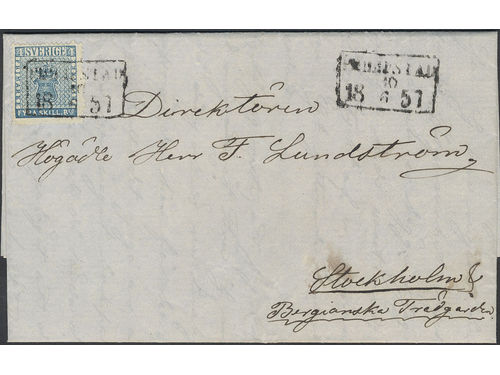 SVERIGE
FYRA SKILL. Bco
18 57
10
18 6 57
Direktören
Högädle Herr F. Lundström,
Stockholm &
Bergianska Trädgården